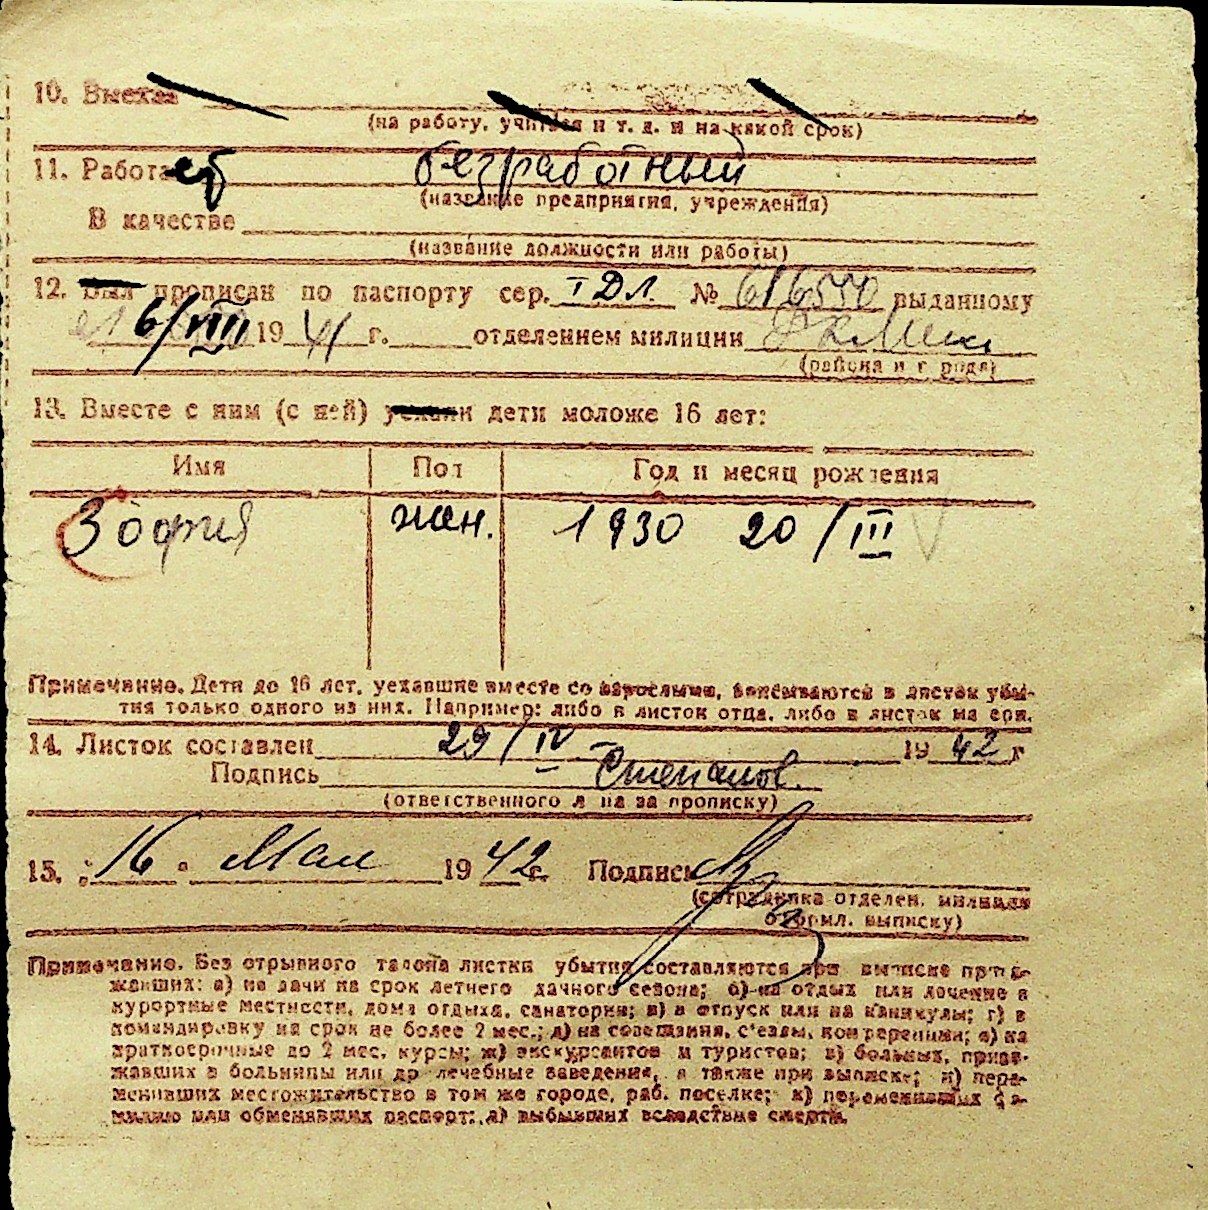 10. Выехал
(на работу, учиться и т. д. и на какой срок)
11. Работает безработный
(название предприятия, учреждения)
В качестве
(название должности или работы)
12. Был прописан по паспорту сер. I ДЛ № 616550 выданному
6/VIII 1941 г. отделением милиции
(района и города)
13. Вместе с ним (с ней) уехали дети моложе 16 лет:
Имя Пол Год и месяц рождения
Зофия жен. 1930 20/III
Примечание. Дети до 16 лет, уехавшие вместе со взрослыми, вписываются в листок убы-
тия только одного из них. Например: либо в листок отца, либо в листок матери.
14. Листок составлен 29/IV 1942 г
Подпись Степанов.
(ответственного лица за прописку)
15. „16“ Мая 1942 г. Подпись
(сотрудника отделен. милиции
оформил. выписку)
Примечание. Без отрывного талона листки убытия составляются при выписке приез-
жавших: а) на дачи на срок летнего дачного сезона; б) на отдых или лечение в
курортные местности, дома отдыха, санатории; в) в отпуск или на каникулы; г) в
командировку на срок не более 2 мес.; д) на совещания, с'езды, конференции; е) на
краткосрочные до 2 мес. курсы; ж) экскурсантов и туристов; з) больных, приез-
жавших в больницы или др лечебные заведения, а также при выписке; и) пере-
менивших местожительство в том же городе, раб. поселке; к) переменивших фа-
милию или обменявших паспорт; л) выбывших вследствие смерти.